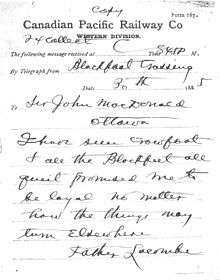 Copy
Form 165.
Canadian Pacific Railway Co
WESTERN DIVISION.
24 Collect
The following message received at
Time 545P M.
By Telegraph from Blackfoot Crossing
Date 30th 1885
To Sir John Macdonald
Ottawa
I have seen Crowfoot
& all the Blackfeet all
quiet promised me to
be loyal no matter
how the things may
turn Elsewhere
Father Lacombe